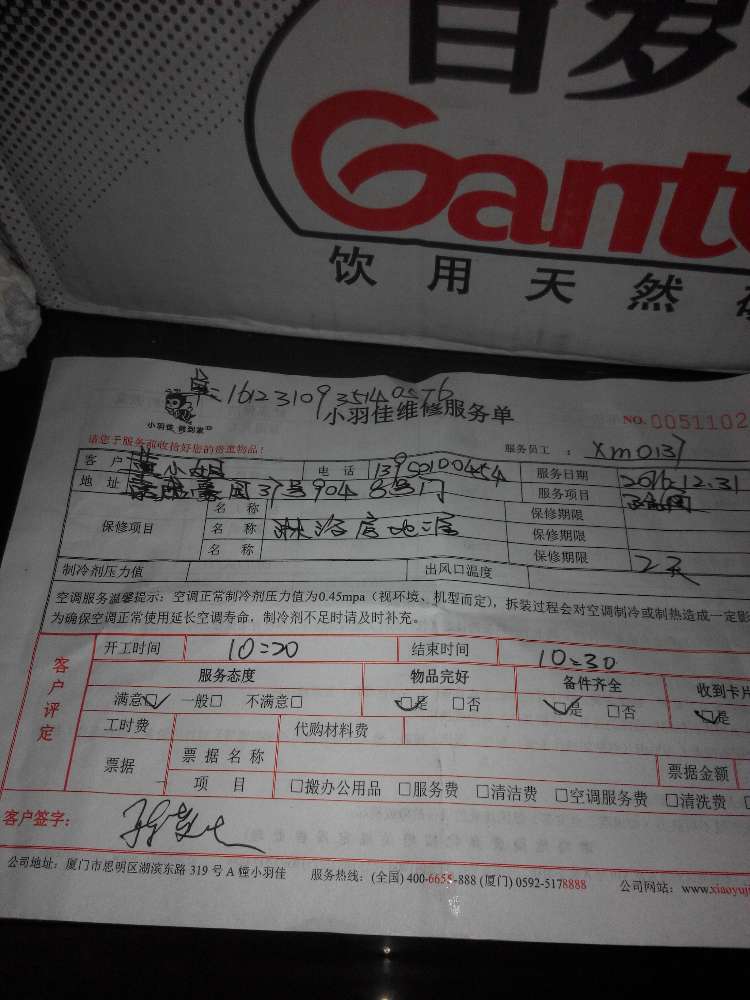 百岁
Gant
饮用天然
单:1612310935140576
小羽佳 做到家
小羽佳维修服务单
NO.0051102
请您于服务前收拾好您的贵重物品!
服务员工 : XM0137
客 户 小姐 电 话 13900100454 服务日期 2016.12.31
地 址 37号904 服务项目
保修项目 名 称 保修期限
名 称 淋浴房地漏 保修期限
名 称 保修期限 2天
制冷剂压力值 出风口温度
空调服务温馨提示:空调正常制冷剂压力值为0.45mpa(视环境、机型而定),拆装过程会对空调制冷或制热造成一定影
为确保空调正常使用延长空调寿命,制冷剂不足时请及时补充。
客户评定
开工时间 10:20 结束时间 10:30
服务态度 物品完好 备件齐全 收到卡片
满意□ 一般□ 不满意□ □是 □否 □是 □否 □是
工时费 代购材料费
票据 票据名称 票据金额
项 目 □搬办公用品 □服务费 □清洁费 □空调服务费 □清洗费
客户签字:
公司地址:厦门市思明区湖滨东路 319 号 A 幢小羽佳 服务热线:(全国) 400-6655-888 (厦门) 0592-5178888 公司网站:www.xiaoyuj